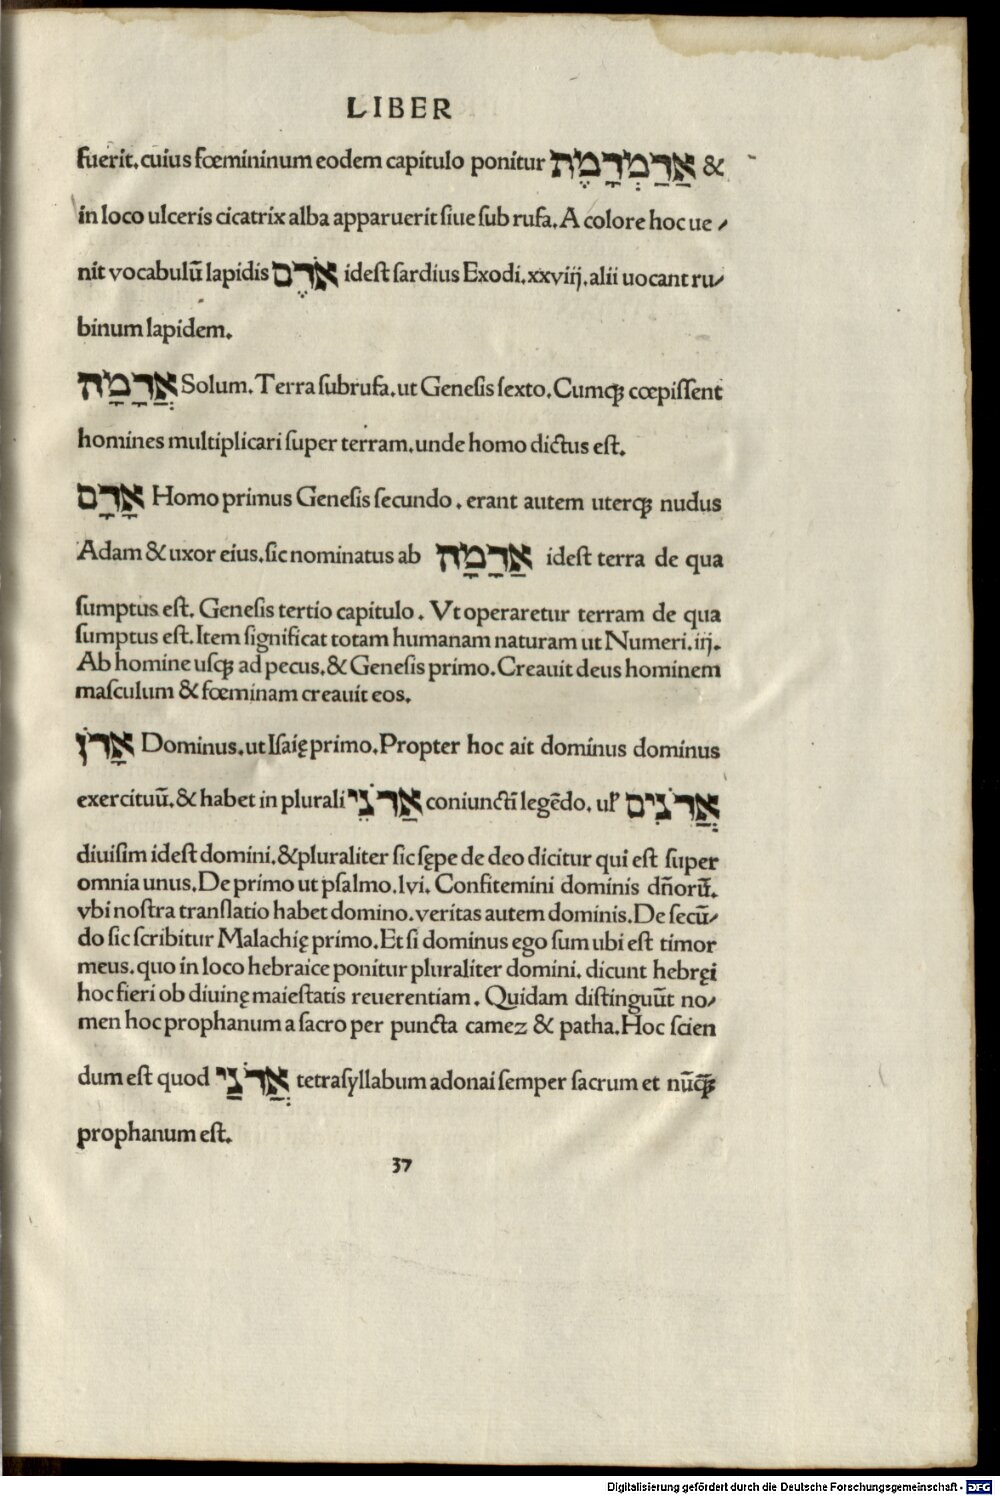 LIBER
fuerit.cuius fœmininum eodem capitulo ponitur אֲדַמְדָמֶת &
in loco ulceris cicatrix alba apparuerit siue sub rufa.A colore hoc ue⸗
nit vocabulū lapidis אֹדֶם idest sardius Exodi.xxviij.alii uocant ru⸗
binum lapidem.
אֲדָמָה Solum.Terra subrufa.ut Genesis sexto.Cumqꝫ cœpissent
homines multiplicari super terram.unde homo dictus est.
אָדָם Homo primus Genesis secundo.erant autem uterqꝫ nudus
Adam & uxor eius.sic nominatus ab אַדָמָה idest terra de qua
sumptus est. Genesis tertio capitulo. Vt operaretur terram de qua
sumptus est.Item significat totam humanam naturam ut Numeri.iij.
Ab homine usqꝫ ad pecus.& Genesis primo.Creauit deus hominem
masculum & fœminam creauit eos.
אָדֹן Dominus.ut Isaię primo.Propter hoc ait dominus dominus
exercituū.& habet in plurali אַדֹנֵי coniunctī legēdo. ul̓ אֲדֹנִים
diuisim idest domini.&pluraliter sic sępe de deo dicitur qui est super
omnia unus.De primo ut psalmo.lvi. Confitemini dominis dn̄orū.
vbi nostra translatio habet domino.veritas autem dominis.De secū⸗
do sic scribitur Malachię primo.Et si dominus ego sum ubi est timor
meus.quo in loco hebraice ponitur pluraliter domini. dicunt hebręi
hoc fieri ob diuinę maiestatis reuerentiam. Quidam distinguūt no⸗
men hoc prophanum a sacro per puncta camez & patha.Hoc scien
dum est quod אֲדֹנַי tetrasyllabum adonai semper sacrum et nūqꝫ
prophanum est.
37
Digitalisierung gefördert durch die Deutsche Forschungsgemeinschaft - DFG